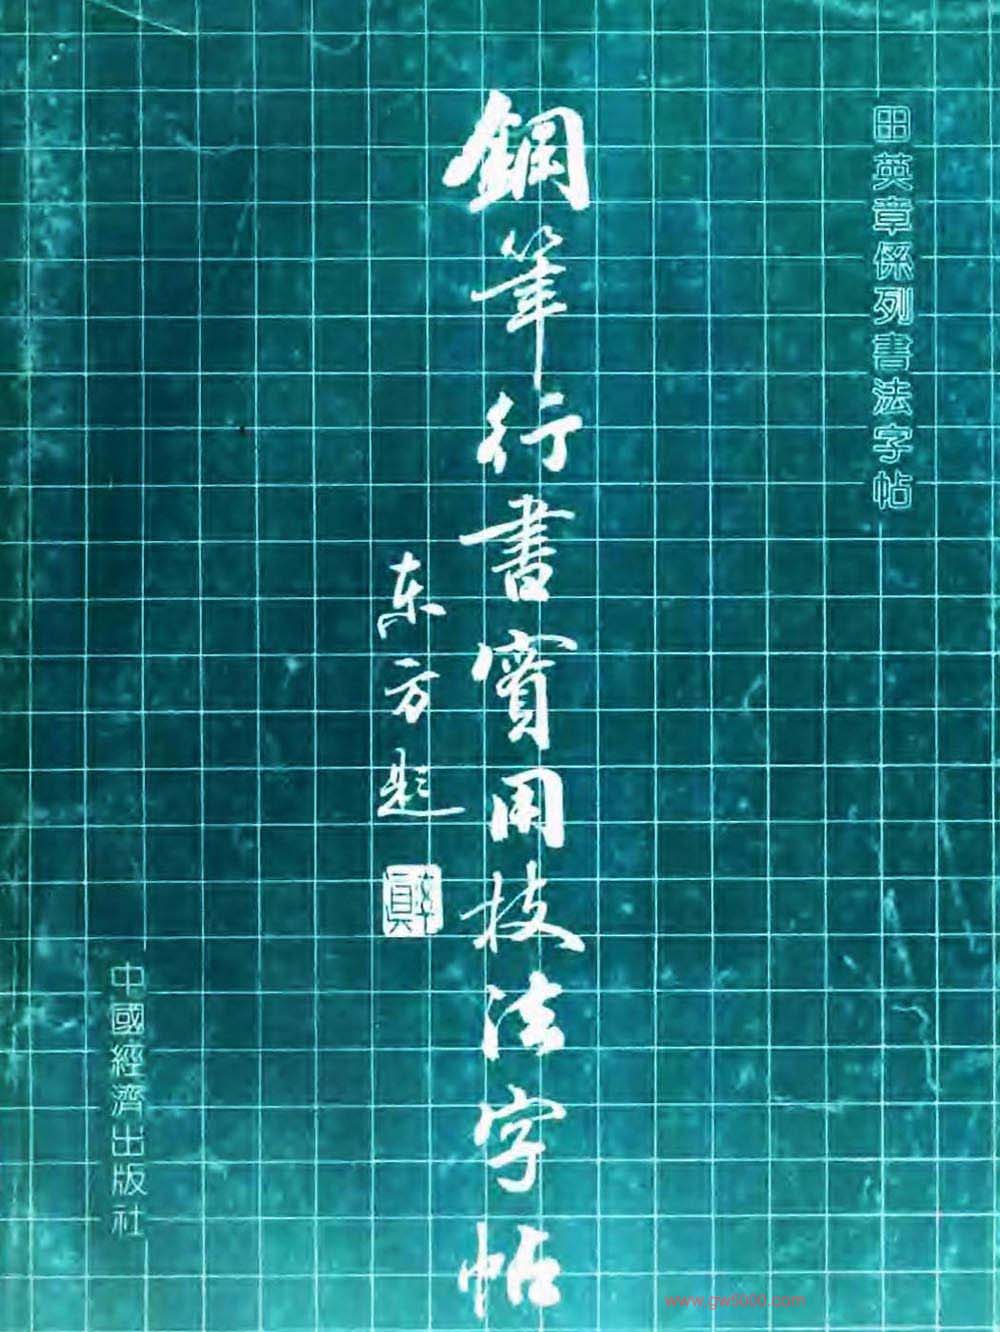 田英章係列書法字帖
鋼筆行書實用技法字帖
东方题
中國經濟出版社
www.gw5000.com